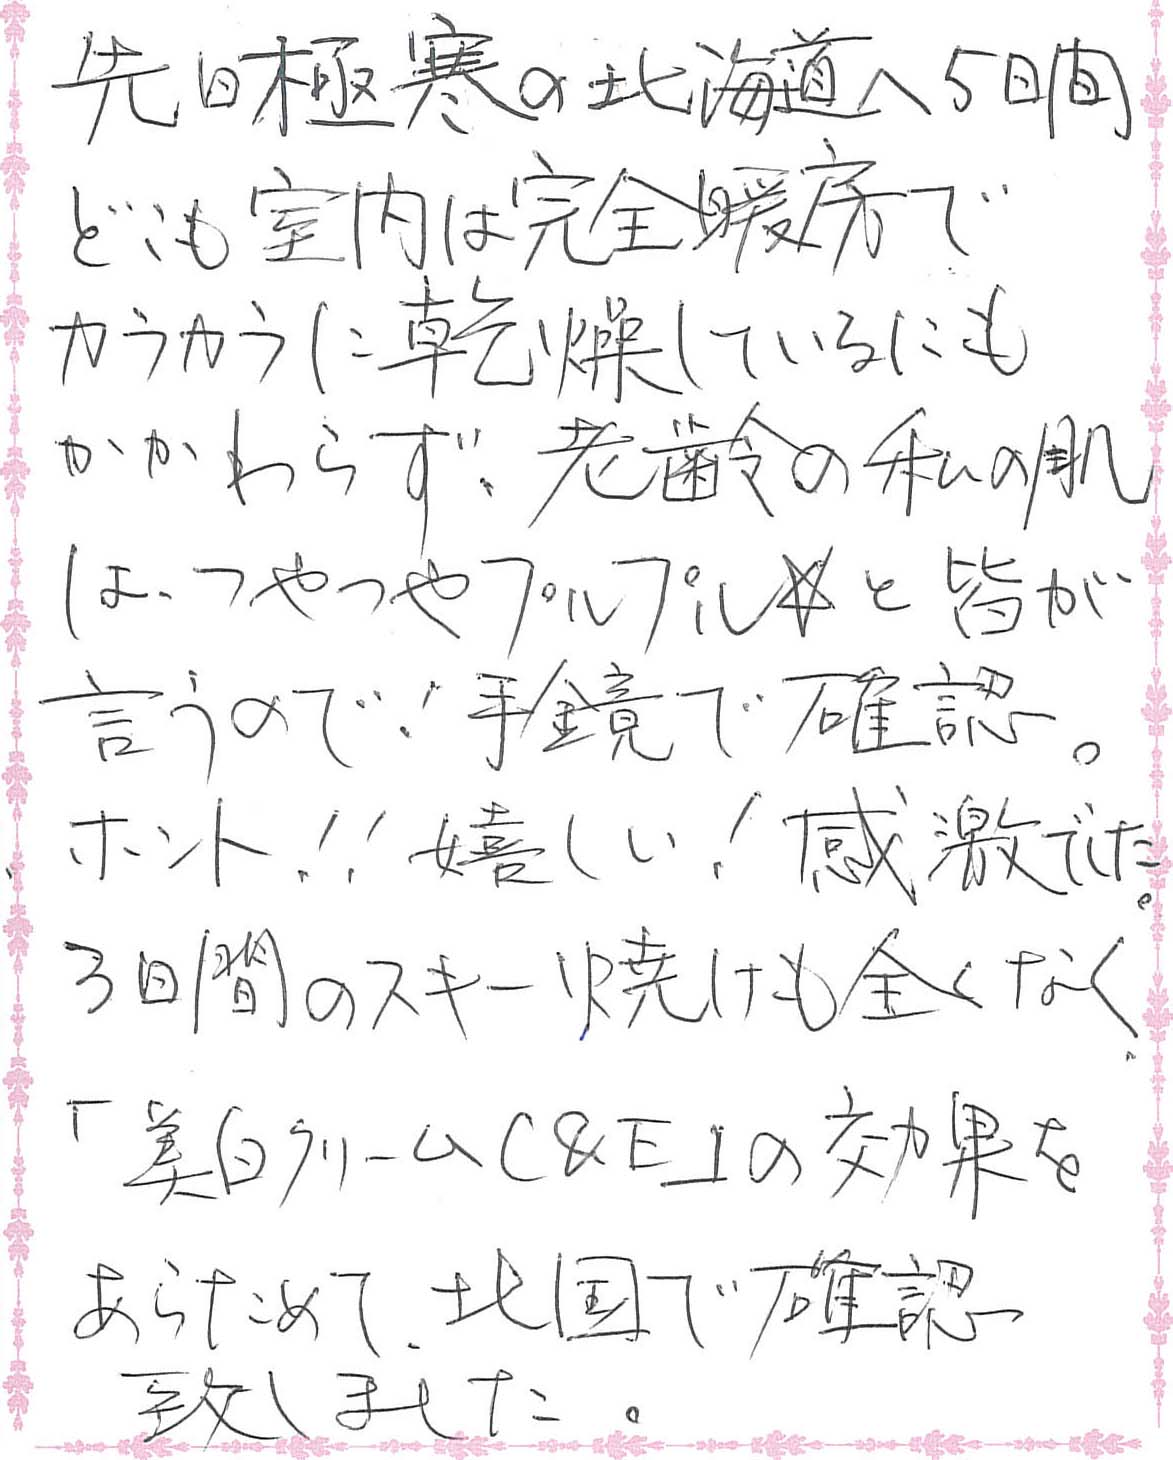 先日極寒の北海道へ5日間
どこも室内は完全暖房で
カラカラに乾燥しているにも
かかわらず、老齢の私の肌
は、つやつやプルプル☆と皆が
言うので！手鏡で確認。
ホント！！嬉しい！感激でした。
3日間のスキー焼けも全くなく、
「美白クリームC&E」の効果を
あらためて、北国で確認
致しました。